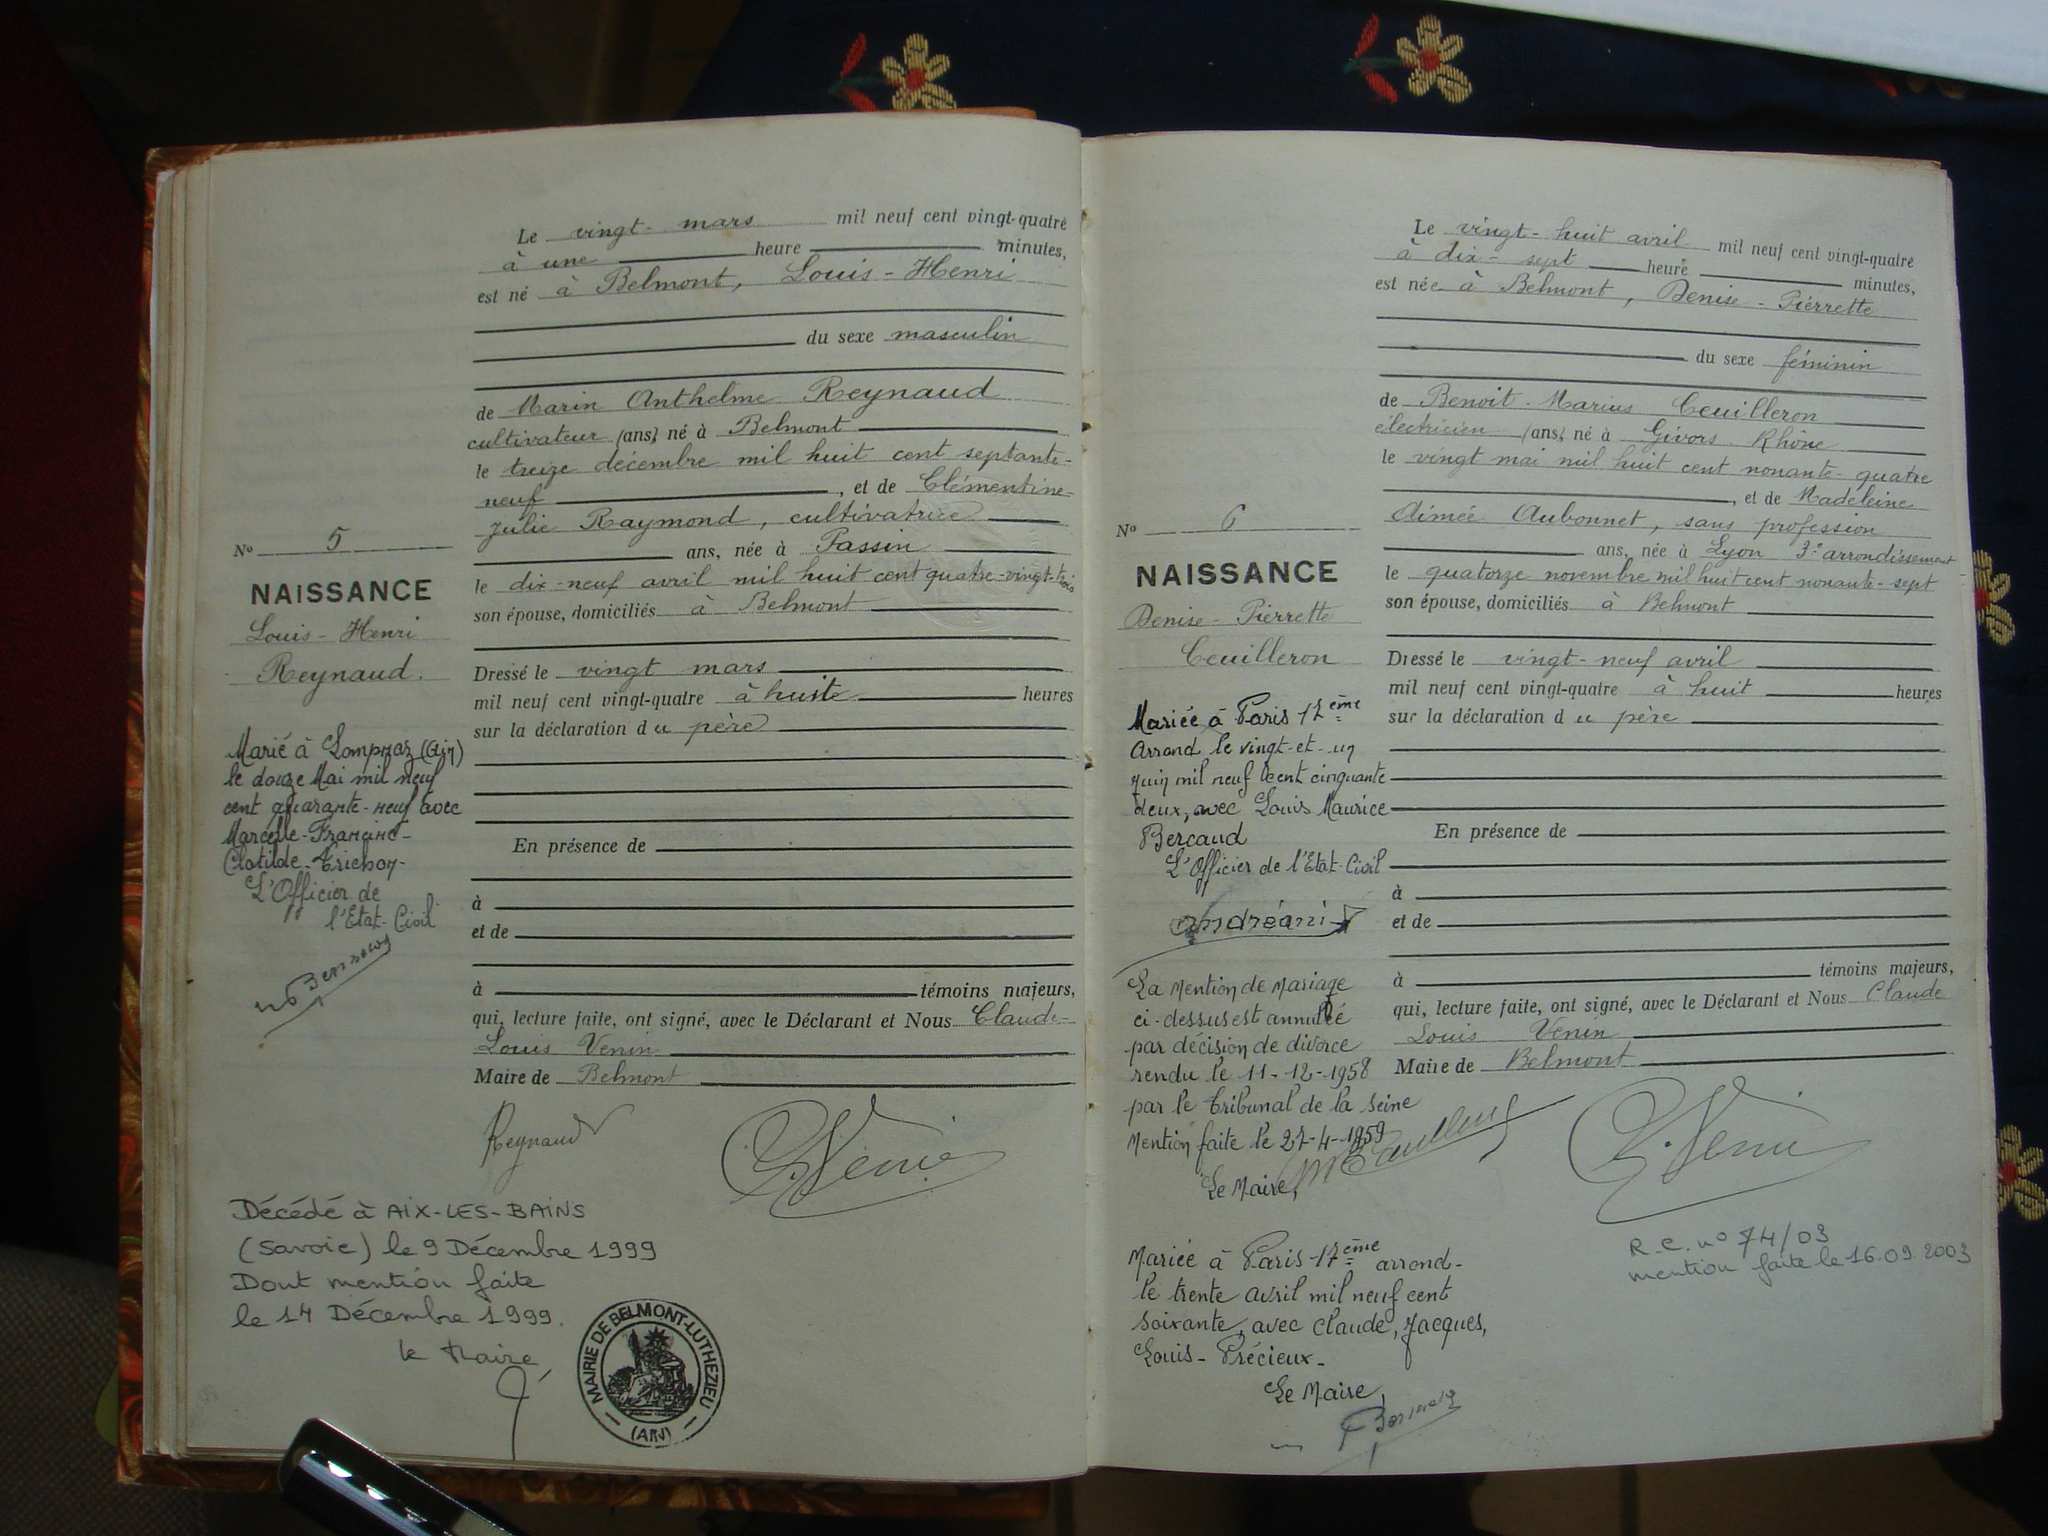 Le vingt-mars mil neuf cent vingt-quatre
à une heure minutes,
est né à Belmont, Louis-Henri
du sexe masculin
de Marin Anthelme Reynaud
cultivateur (ans) né à Belmont
le treize décembre mil huit cent septante-
neuf, et de Clémentine-
Julie Raymond, cultivatrice
ans, née à Passin
le dix-neuf avril mil huit cent quatre-vingt-trois
son épouse, domiciliés à Belmont
Dressé le vingt mars
mil neuf cent vingt-quatre à huite heures
sur la déclaration du père
En présence de
à
et de
à témoins majeurs,
qui, lecture faite, ont signé, avec le Déclarant et Nous Claude-
Louis Venin
Maire de Belmont
Reynaud
No 5
NAISSANCE
Louis-Henri
Reynaud.
Marié à Lompnaz (Ain)
le douze Mai mil neuf
cent quarante-neuf avec
Marcelle-Francine-
Clotilde-Trichon-
L'Officier de
l'Etat-Civil
Décédé à AIX-LES-BAINS
(Savoie) le 9 Décembre 1999
Dont mention faite
le 14 Décembre 1999.
le Maire,
MAIRIE DE BELMONT-LUTHEZIEU
(AIN)
Le vingt-huit avril mil neuf cent vingt-quatre
à dix-sept heure minutes,
est née à Belmont, Denise-Pierrette
du sexe féminin
de Benoit-Marius Ceuilleron
électricien (ans) né à Givors Rhône
le vingt mai mil huit cent nonante-quatre
, et de Madeleine
Aimée Aubonnet, sans profession
ans, née à Lyon 3e arrondissement
le quatorze novembre mil huit cent nonante-sept
son épouse, domiciliés à Belmont
Dressé le vingt-neuf avril
mil neuf cent vingt-quatre à huit heures
sur la déclaration du père
En présence de
à
et de
à témoins majeurs,
qui, lecture faite, ont signé, avec le Déclarant et Nous Claude
Louis Venin
Maire de Belmont
No 6
NAISSANCE
Denise-Pierrette
Ceuilleron
Mariée à Paris 17ème
Arrond le vingt-et-un
Juin mil neuf cent cinquante
deux, avec Louis Maurice
Bercaud
L'Officier de l'Etat-Civil
Andréani
La Mention de Mariage
ci-dessus est annulée
par décision de divorce
rendu le 11-12-1958
par le Tribunal de la Seine
Mention faite le 27-4-1959
Le Maire,
Mariée à Paris-17ème arrond-
le trente Avril mil neuf cent
soixante, avec Claude, Jacques,
Louis-Précieux-
Le Maire,
R.C. no 74/03
mention faite le 16.09.2003